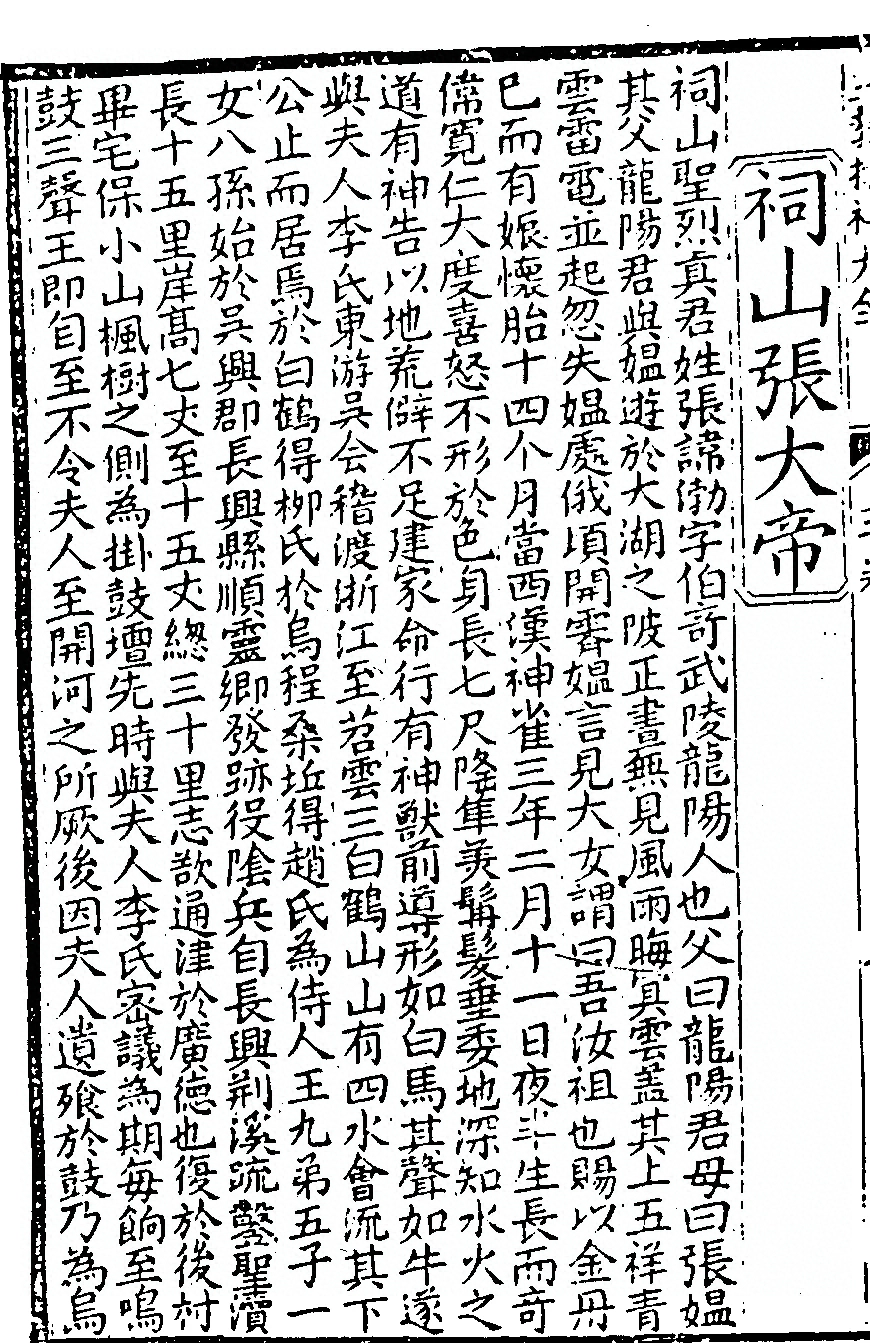 祠山張大帝
祠山聖烈真君姓張諱渤字伯竒武陵龍陽人也父曰龍陽君母曰張媼
其父龍陽君與媼遊於大湖之陂正晝無見風雨晦冥雲蓋其上五祥青
雲雷電並起忽失媼處俄頃開霽媼言見大女謂曰吾汝祖也賜以金丹
已而有娠懷胎十四个月當西漢神雀三年二月十一日夜半生長而竒
偉寛仁大度喜怒不形於色身長七尺隆準美髯髮垂委地深知水火之
道有神告以地荒僻不足建家命行有神獸前導形如白馬其聲如牛遂
與夫人李氏東游吳会稽渡浙江至苕雲三白鶴山山有四水會流其下
公止而居焉於白鶴得柳氏於烏程桑坵得趙氏為侍人王九弟五子一
女八孫始於吳興郡長興縣順靈鄉發跡役陰兵自長興荆溪疏鑿聖瀆
長十五里岸髙七丈至十五丈總三十里志欲通津於廣德也復於後村
畢宅保小山楓樹之側為掛鼓壇先時與夫人李氏密議為期每餉至鳴
鼓三聲王即自至不令夫人至開河之所厥後因夫人遺飱於鼓乃為烏